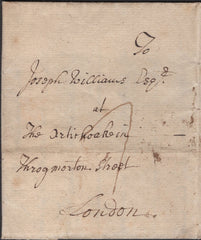 To
Joseph Williams Esqr.
at
The Artichoake in
Throgmorton Street
London